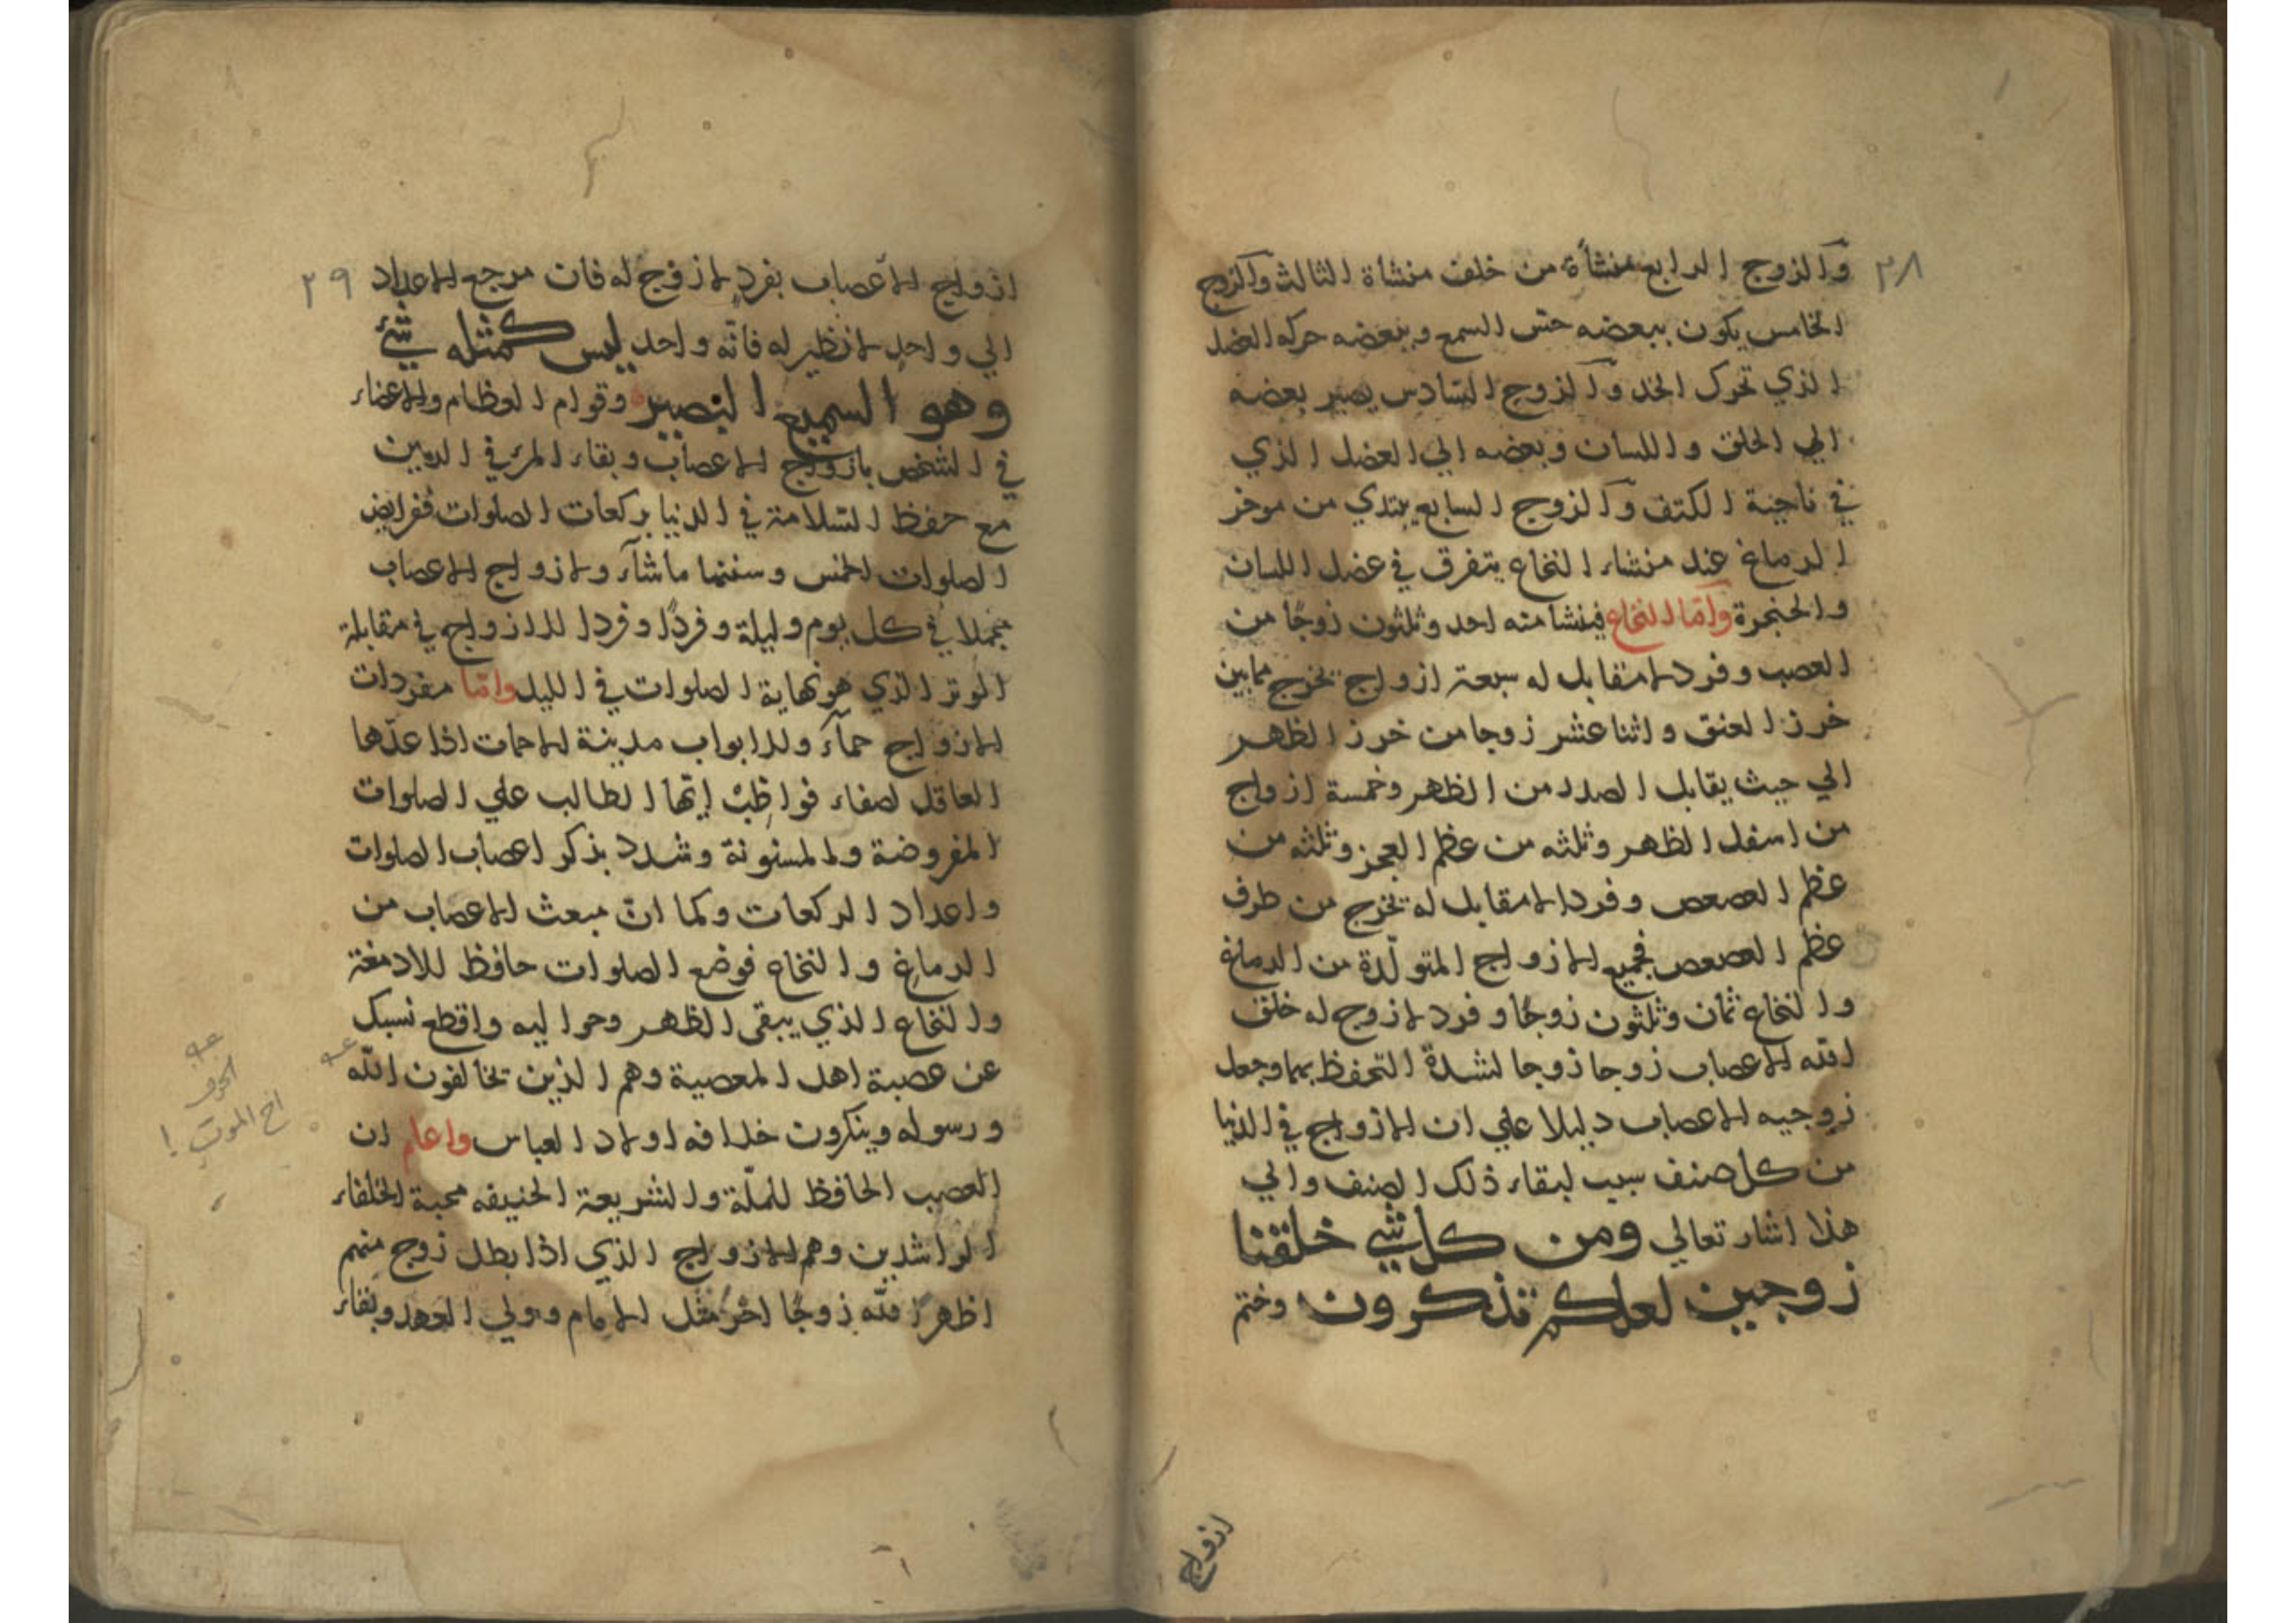 ٢٨
والزوج الرابع منشأة من خلف منشاة الثالث والزوج
الخامس يكون ببعضه حس السمع وببعضه حركه العضل
الذي تحرك الخد والزوج السادس يصير بعضه
الي الحلق واللسان وبعضه الي العضل الذي
في ناحية الكتف والزوج السابع يبتدي من موخر
الدماغ عند منشاء النخاع يتفرق في عضل اللسان
والحنجرة وامّا النخاع فينشا منه احد وثلثون زوجًا من
العصب وفرد لا مقابل له سبعة ازواج تخرج مابين
خرز العنق واثنا عشر زوجا من خرز الظهر
الي حيث يقابل الصدر من الظهر وخمسة ازواج
من اسفل الظهر وثلثه من عظم العجز وثلثه من
عظم العصعص وفرد لا مقابل له تخرج من طرف
عظم العصعص فجميع الازواج المتولّدة من الدماغ
والنخاع ثمان وثلثون زوجًا وفرد لا زوج له خلق
الله الاعصاب زوجا زوجا لشدة التحفظ بها وجعل
زوجيه الاعصاب دليلا علي ان الازواج في الدنيا
من كل صنف سبب لبقاء ذلك الصنف والي
هذا اشار تعالي ومن كل شي خلقنا
زوجين لعلكم تذكرون وختم
ازواج
٢٩
ازواج الاعصاب بفردٍ لا زوج له فان مرجع الاعداد
الي واحد لا نظير له فانّه واحد ليس كمثله شيئ
وهو السميع البصير وقوام العظام والاعضاء
في الشخص بازواج الاعصاب وبقاء المرء في الدين
مع حفظ السلامة في الدنيا بركعات الصلوات ففرايض
الصلوات الخمس وسننها ماشاء ولازواج الاعصاب
مجملا في كل يوم وليلة وفردًا وفردا للازواج في مقابلة
الوتر الذي هو نهاية الصلوات في الليل وامّا مفردات
الازواج حماء ولابواب مدينة لاحمات اذا عدّها
العاقل لصفاء فواظِبْ ايّها الطالب علي الصلوات
المفروضة والمسنونة وشدد بذكر اعصاب الصلوات
واعداد الركعات وكما انّ مبعث الاعصاب من
الدماغ والنخاع فوضع الصلوات حافظ للادمغة
والنخاع الذي يبقى الظهر وحرا ليه واقطع نسبك
عن عصبة اهل المعصية وهم الذين تخالفون الله
ورسوله وينكرون خلافه اولاد العباس واعلم ان
العصب الحافظ للملّة والشريعة الحنيفه محبة الخلفاء
الراشدين وهم الازواج الذي اذا بطل زوج منهم
اظهر الله زوجًا اخر مثل الامام وولي العهد وبقاء
اخ الموت !